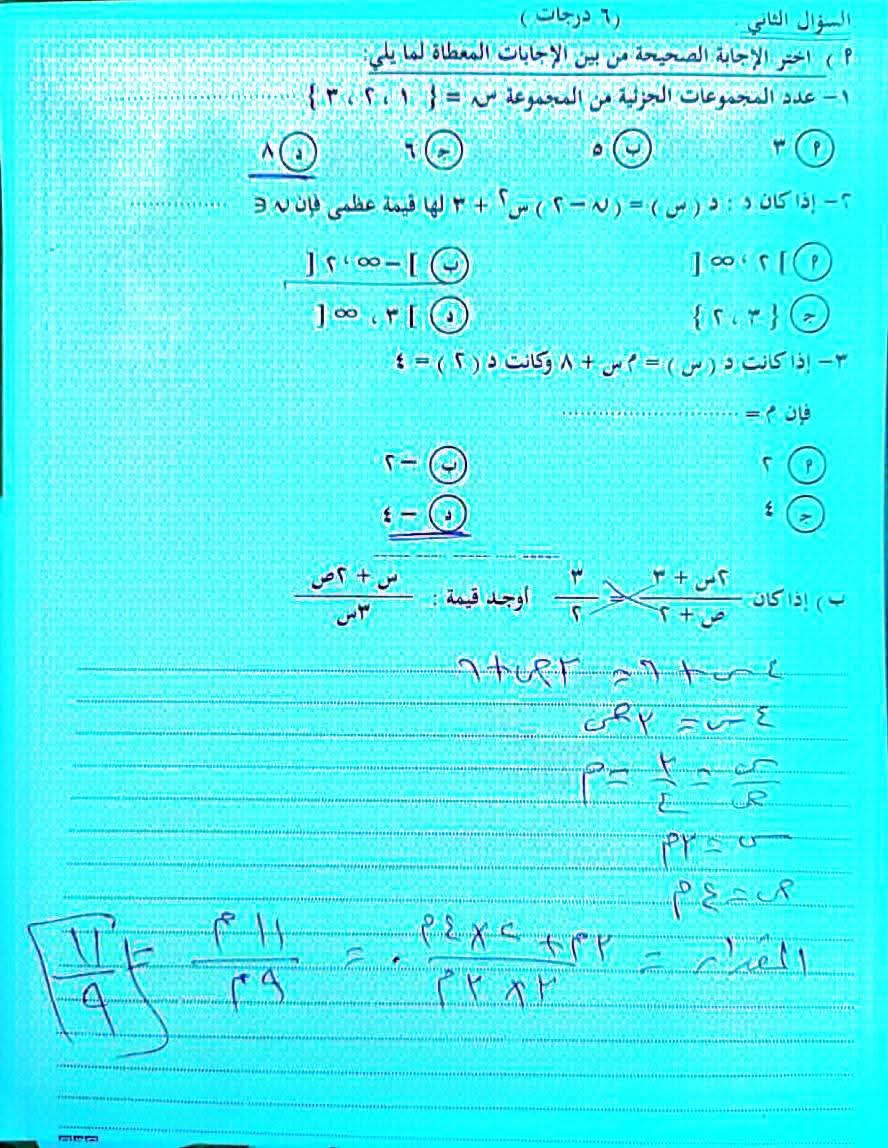 السؤال الثاني : (٦ درجات)
أ) اختر الإجابة الصحيحة من بين الإجابات المعطاة لما يلي:
١- عدد المجموعات الجزئية من المجموعة س = { ١ ، ٢ ، ٣ } ..............
أ ٣ ب ٥ ج ٦ د ٨
٢- إذا كان د : د (س) = (ن - ٢) س² + ٣ لها قيمة عظمى فإن ن ∈ ..............
أ ]٢ ، ∞[ ب ]-∞ ، ٢[
ج { ٣ ، ٢ } د ]٣ ، ∞[
٣- إذا كانت د (س) = م س + ٨ وكانت د (٢) = ٤
فإن م = ..............
أ ٢ ب -٢
ج ٤ د -٤
ب) إذا كان (٢س + ٣)/(ص + ٢) = ٣/٢ أوجد قيمة : (س + ٢ص)/٣س
٤س + ٦ = ٣ص + ٦
٤س = ٣ص
س/ص = ٣/٤ = م
س = ٣م
ص = ٤م
المقدار = (٣م + ٢×٤م)/(٣×٣م) = ١١م/٩م = ١١/٩